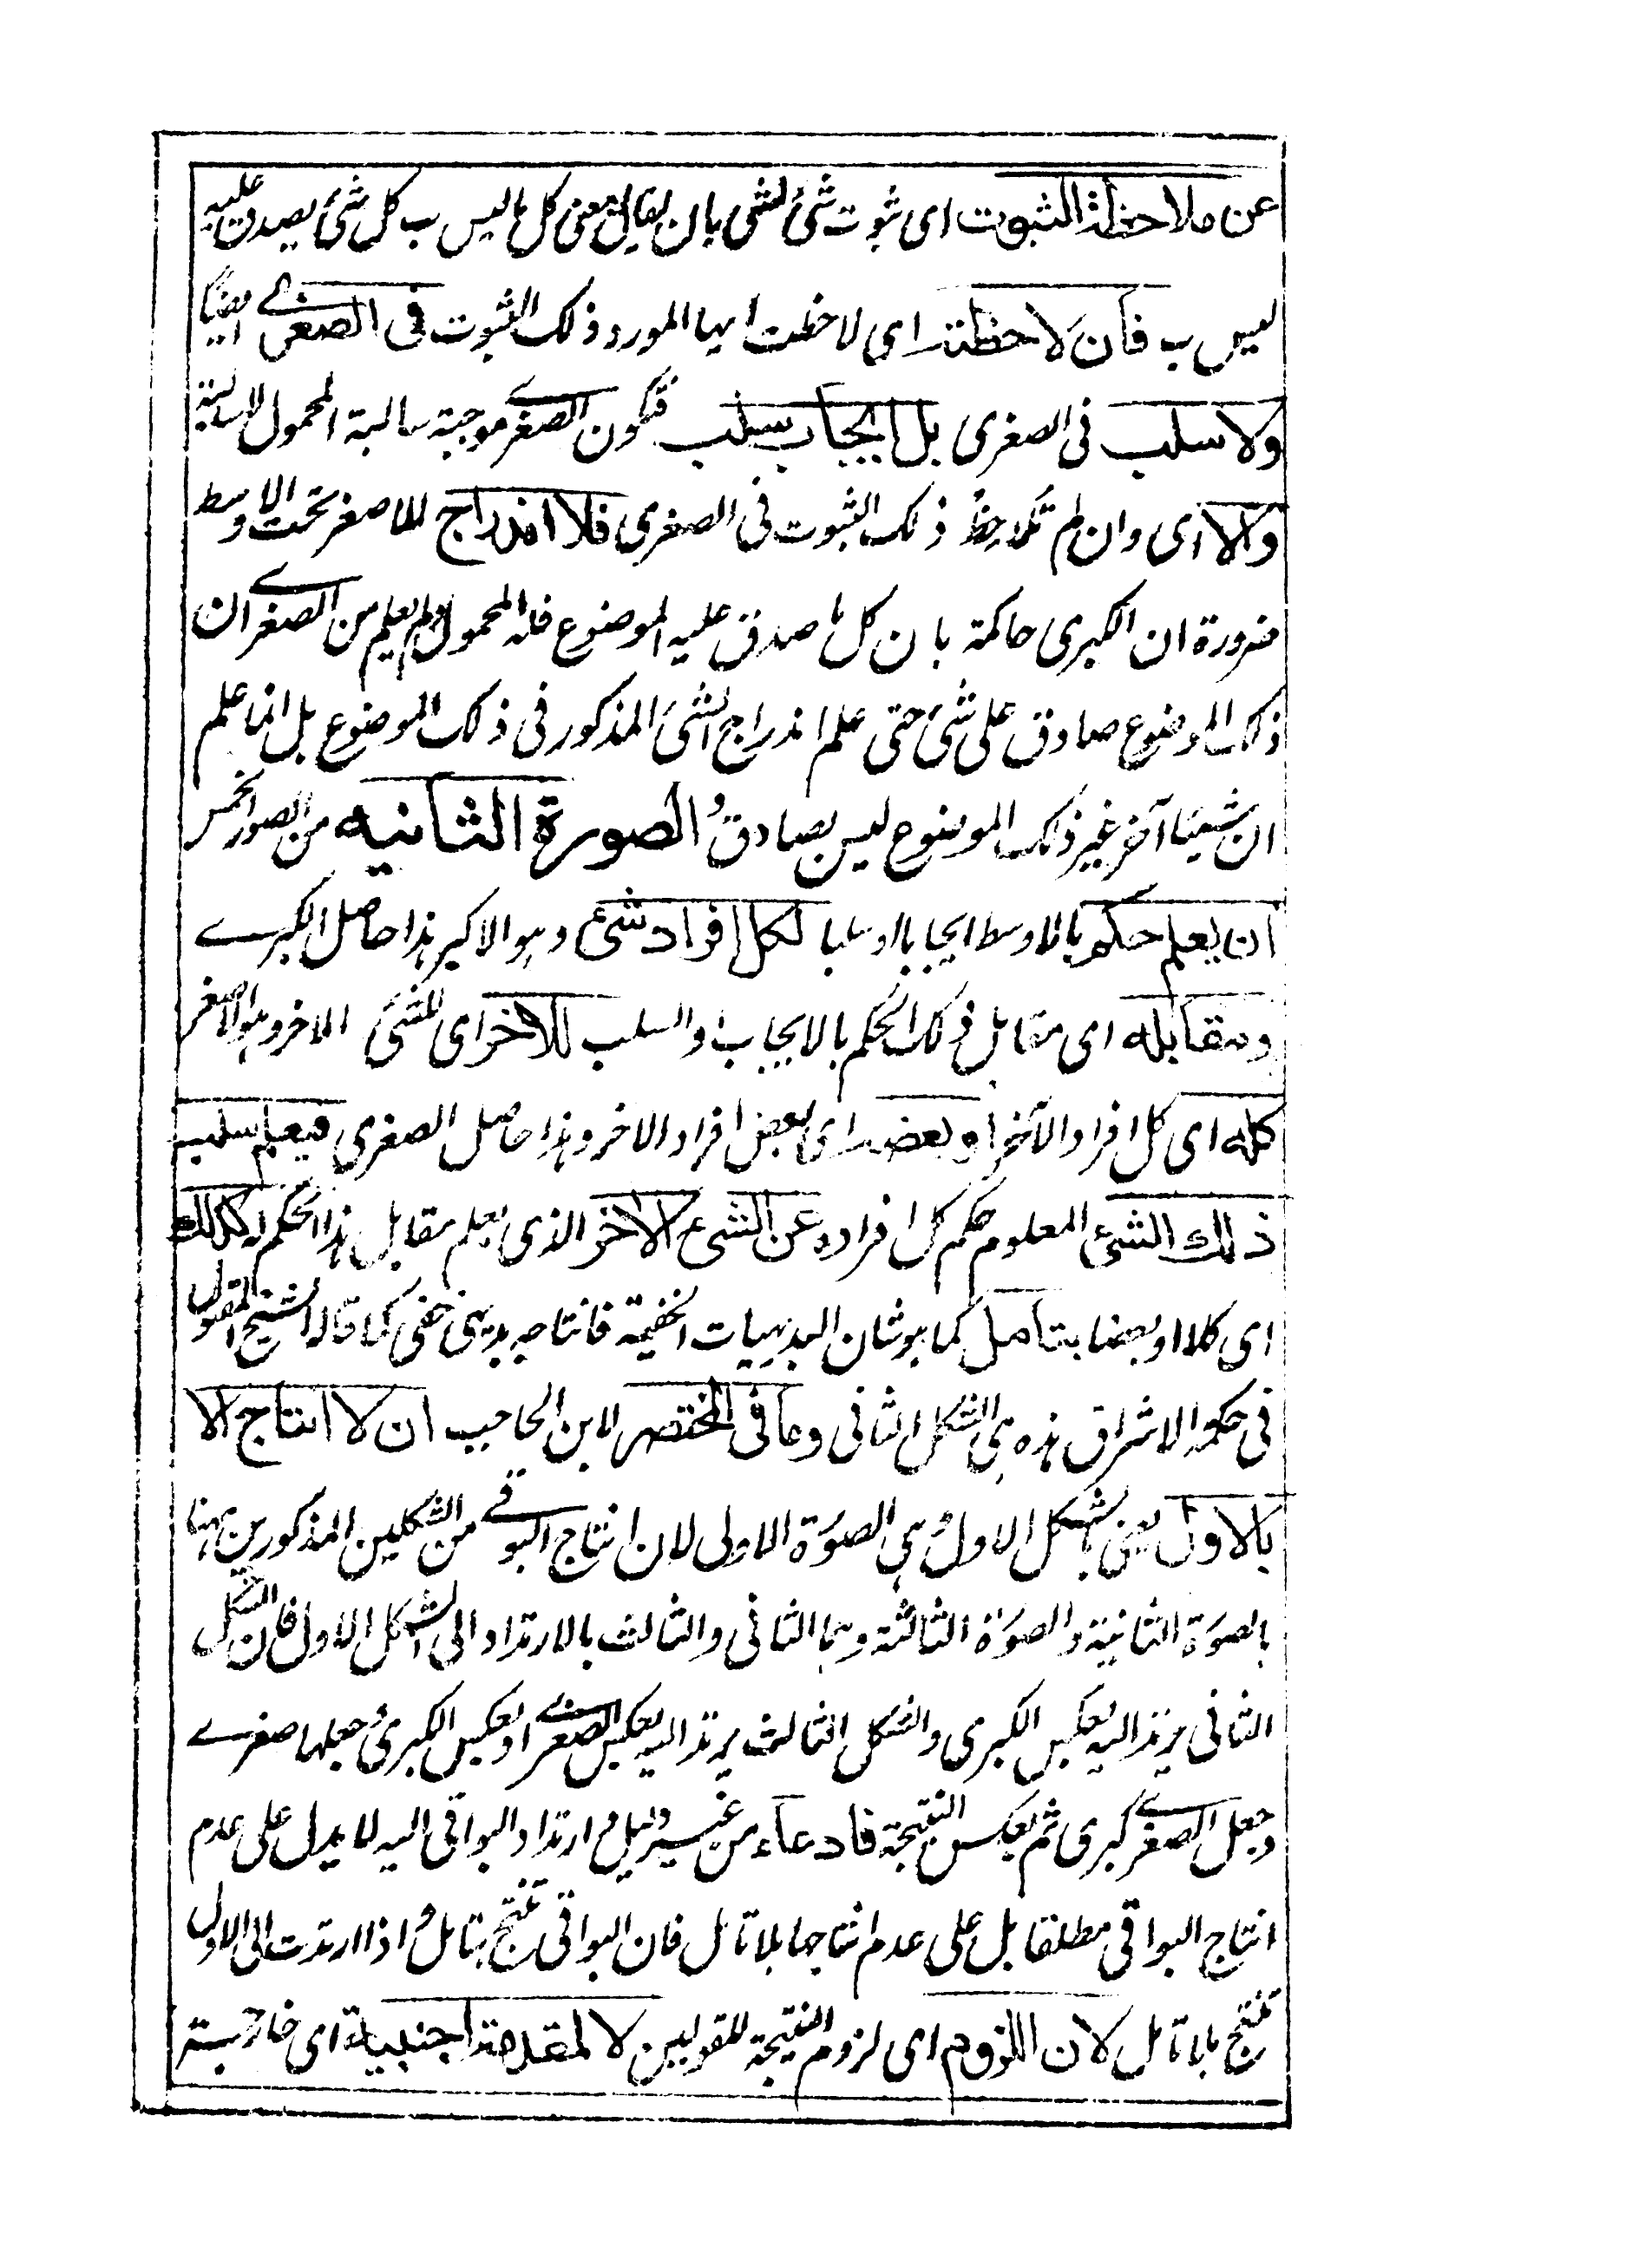 عن ملاحظة الثبوت اى ثبوت شئ لشئ بان يقال معنى كل ما ليس ب كل شئ يصدق عليه
ليس ب فان لاحظته اى لاحظت ايها المورد ذلك الثبوت فى الصغرى ايضا
ولا سلب فى الصغرى بل ايجاب سلب فتكون الصغرى موجبة سالبة المحمول لا سالبة
والا اى وان لم تلاحظ ذلك الثبوت فى الصغرى فلا اندراج للاصغر تحت الاوسط
ضرورة ان الكبرى حاكمة بان كل ما صدق عليه الموضوع فله المحمول ولم يعلم من الصغرى ان
ذلك الموضوع صادق على شئ حتى علم اندراج الشئ المذكور فى ذلك الموضوع بل انما علم
ان شيئا آخر غير ذلك الموضوع ليس بصادق و الصورة الثانيه من الصور الخمس
ان يعلم حكم بالاوسط ايجابا او سلبا لكل افراد شئ وهو الاكبر هذا حاصل الكبرى
ومقابله اى مقابل ذلك الحكم بالايجاب او السلب للاخر اى للشئ الاخر وهو الاصغر
كله اى كل افراد الآخر او بعضه اى بعض افراد الاخر وهذا حاصل الصغرى فيعلم سلب
ذلك الشئ المعلوم حكم كل افراده عن الشئ الاخر الذى يعلم مقابل هذا الحكم له كذلك
اى كلا او بعضا بتامل كما هو شان البديهيات الخفية فانتاجه بديهى خفى كما قال الشيخ المقتول
فى حكمة الاشراق هذه هى الشكل الثانى وما فى المختصر لابن الحاجب ان لا انتاج الا
بالاول يعنى بالشكل الاول وهى الصورة الاولى لان انتاج البواقى من الشكلين المذكورين ههنا
بالصورة الثانية والصورة الثالثة وهما الثانى والثالث بالارتداد الى الشكل الاول فان الشكل
الثانى يرتد اليه بعكس الكبرى والشكل الثالث يرتد اليه بعكس الصغرى او بعكس الكبرى وجعلها صغرى
وجعل الصغرى كبرى ثم بعكس النتيجة فادعاء من غير دليل و ارتداد البواقى اليه لا يدل على عدم
انتاج البواقى مطلقا بل على عدم انتاجها بلا تامل فان البواقى تنتج بتامل و اذا ارتدت الى الاول
تنتج بلا تامل لان اللزوم اى لزوم النتيجة للقولين لا لمقدمة اجنبية اى خارجية